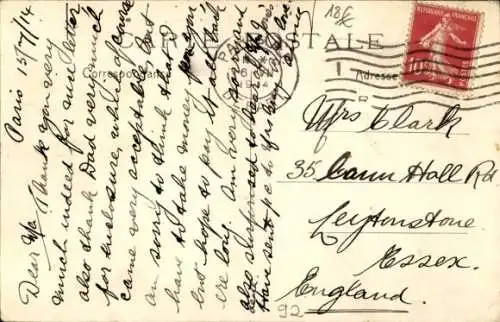 CARTE POSTALE
Correspondance
Adresse
18€
REPUBLIQUE FRANÇAISE
10
PARIS
Paris 15/7/14
Dear Ma / Thank you very
much indeed for nice letter
also thank Dad very much
for enclosure which of course
came very acceptable, but
am sorry to think that I
have to take money from you
but hope to pay it all back
ere long. Am very sorry and
also surprised to hear
have sent pc to
Mrs Clark
35 Cann Hall Rd
Leytonstone
Essex.
England.
92